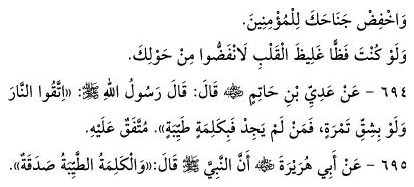 وَاخْفِضْ جَنَاحَكَ لِلْمُؤْمِنِينَ.
وَلَوْ كُنْتَ فَظًّا غَلِيظَ الْقَلْبِ لَانْفَضُّوا مِنْ حَوْلِكَ.
٦٩٤ - عَنْ عَدِيِّ بْنِ حَاتِمٍ ﷺ قَالَ: قَالَ رَسُولُ اللهِ ﷺ: «اِتَّقُوا النَّارَ
وَلَوْ بِشِقِّ تَمْرَةٍ، فَمَنْ لَمْ يَجِدْ فَبِكَلِمَةٍ طَيِّبَةٍ». مُتَّفَقٌ عَلَيْهِ.
٦٩٥ - عَنْ أَبِي هُرَيْرَةَ ﷺ أَنَّ النَّبِيَّ ﷺ قَالَ: «وَالْكَلِمَةُ الطَّيِّبَةُ صَدَقَةٌ».